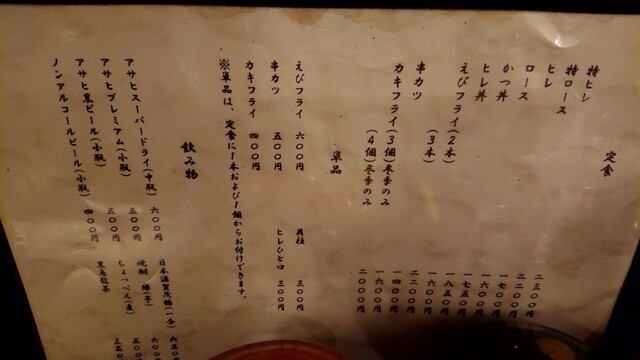 定食
特ヒレ 二三〇〇円
特ロース 二二〇〇円
ヒレ 二〇〇〇円
ロース 一七〇〇円
かつ丼 一六〇〇円
ヒレ丼 一七五〇円
えびフライ(2本) 一八五〇円
(3本)
串カツ
カキフライ(3個)冬季のみ
(4個)冬季のみ 二〇〇〇円
単品
えびフライ 六〇〇円
貝柱 三〇〇円
串カツ 五〇〇円
ヒレひと口 三〇〇円
カキフライ 四〇〇円
※単品は、定食に1本および1個からお付けできます。
飲み物
アサヒスーパードライ(中瓶) 六〇〇円
アサヒプレミアム(小瓶) 五〇〇円
アサヒ黒ビール(小瓶) 五〇〇円
ノンアルコールビール(小瓶) 四〇〇円
日本酒賀茂鶴(一合) 六五〇円
焼酎
ちょっぺん(麦)
黒烏龍茶